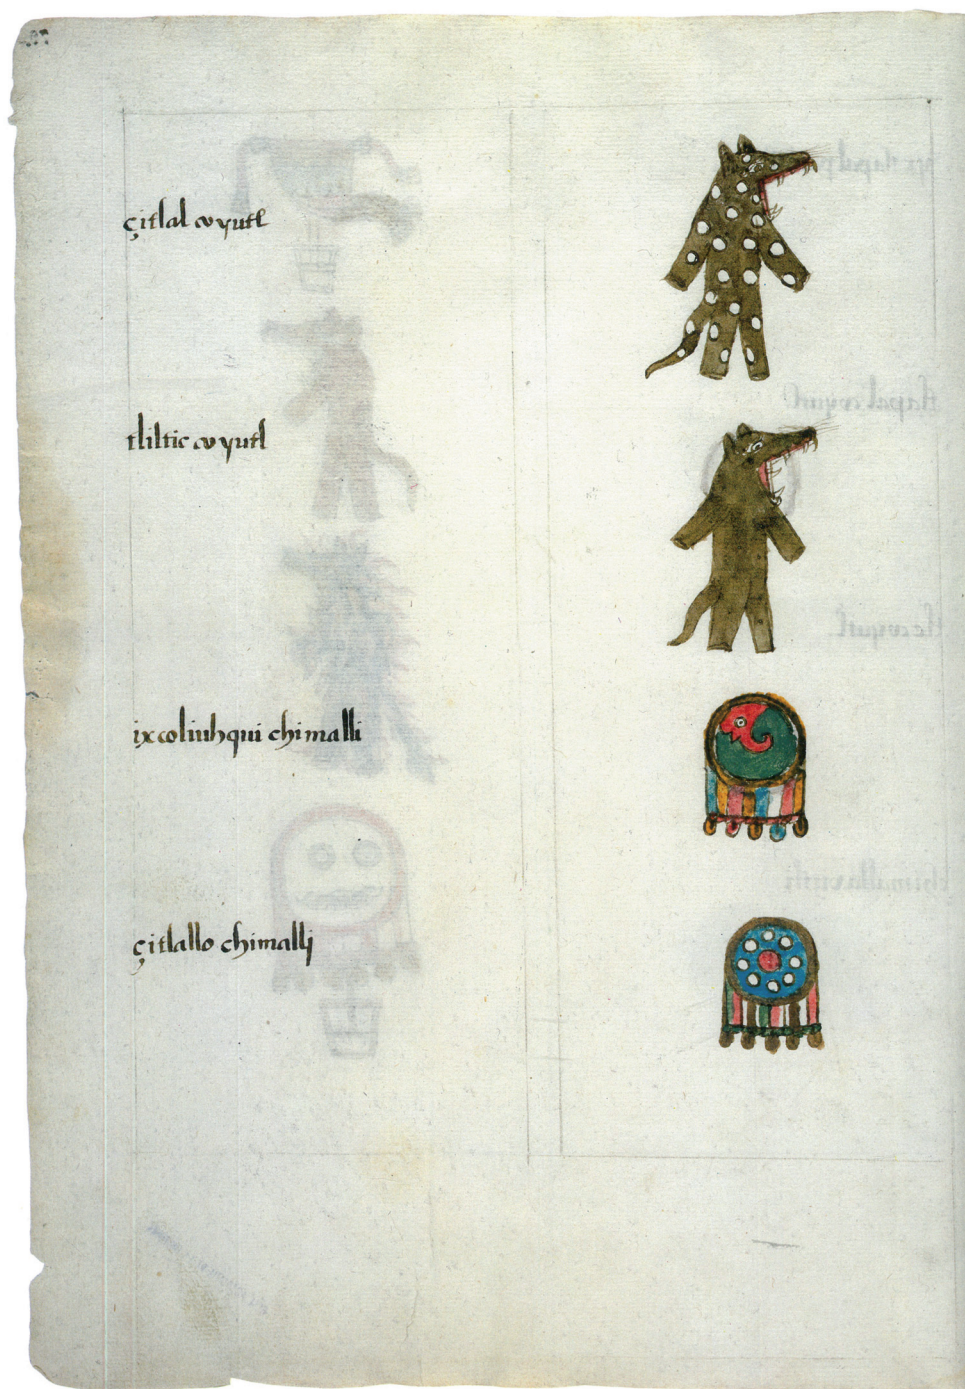 çitlal coyutl
tliltic coyutl
ixcoliuhqui chimalli
çitlallo chimallj